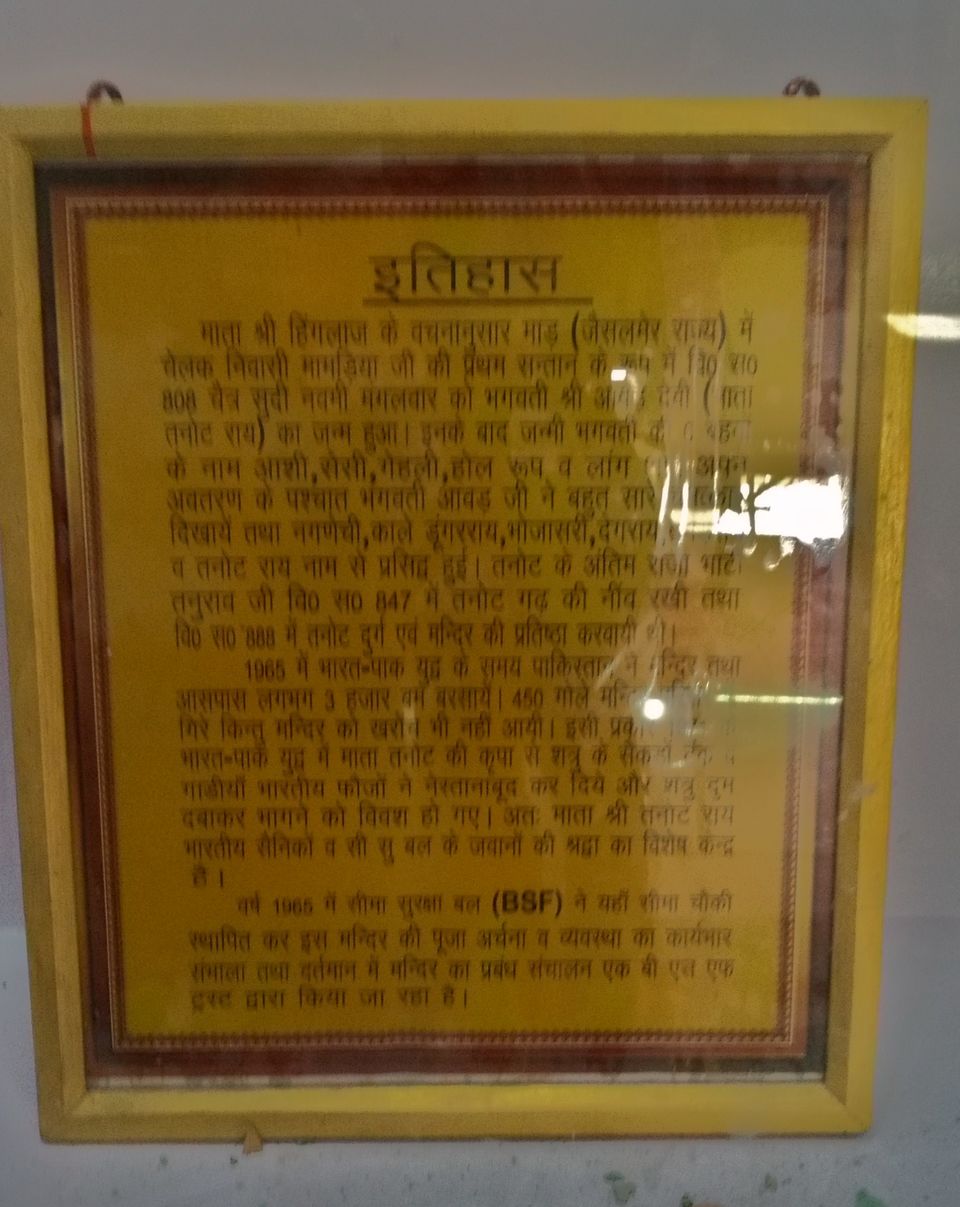 इतिहास
माता श्री हिंगलाज के वचनानुसार माड़ (जैसलमेर राज्य) में
चेलक निवासी मामड़िया जी की प्रथम सन्तान के रूप में वि0 स0
808 चैत्र सुदी नवमी मंगलवार को भगवती श्री आवड़ देवी (माता
तनोट राय) का जन्म हुआ। इनके बाद जन्मी भगवती की बहनों
के नाम आशी,सेसी,गेहली,होल रूप व लांग अपने
अवतरण के पश्चात भगवती आवड़ जी ने बहुत सारे
दिखाये तथा नगणेची,काले डूंगरराय,भोजासरी,देगराय,
व तनोट राय नाम से प्रसिद्ध हुई। तनोट के अंतिम राजा भाटी
तनुराव जी वि0 स0 847 में तनोट गढ़ की नींव रखी तथा
वि0 स0 888 में तनोट दुर्ग एवं मन्दिर की प्रतिष्ठा करवायी थी।
1965 में भारत-पाक युद्व के समय पाकिस्तान ने मन्दिर तथा
आसपास लगभग 3 हजार बम बरसायें। 450 गोले मन्दिर
गिरे किन्तु मन्दिर को खरोंच भी नहीं आयी। इसी प्रकार
भारत-पाक युद्व में माता तनोट की कृपा से शत्रु के सैकड़ों टैंक व
गाडीयाँ भारतीय फौजों ने नेस्तानाबूद कर दिये और शत्रु दुम
दबाकर भागने को विवश हो गए। अतः माता श्री तनोट राय
भारतीय सैनिकों व सी सु बल के जवानों की श्रद्वा का विशेष केन्द्र
है।
वर्ष 1965 में सीमा सुरक्षा बल (BSF) ने यहाँ सीमा चौकी
स्थापित कर इस मन्दिर की पूजा अर्चना व व्यवस्था का कार्यभार
संभाला तथा वर्तमान में मन्दिर का प्रबंध संचालन एक बी एस एफ
ट्रस्ट द्वारा किया जा रहा है।